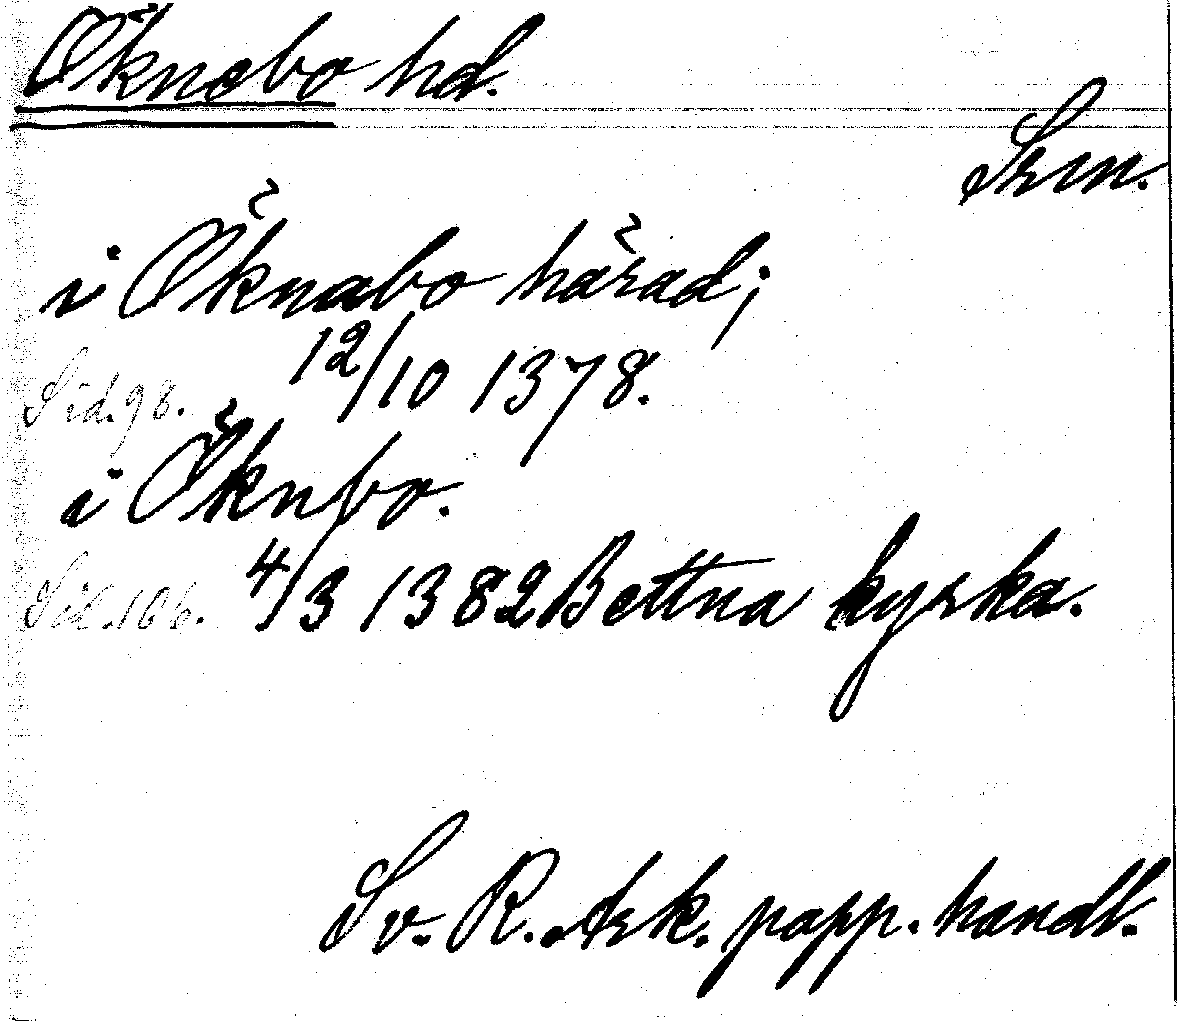 Öknebo hd.
Srm.
i Öknabo härad;
12/10 1378.
Sid. 98.
i Öknbo.
Sid. 106. 4/3 1382 Bettna kyrka.
Sv. R. Ark. papp. handl.